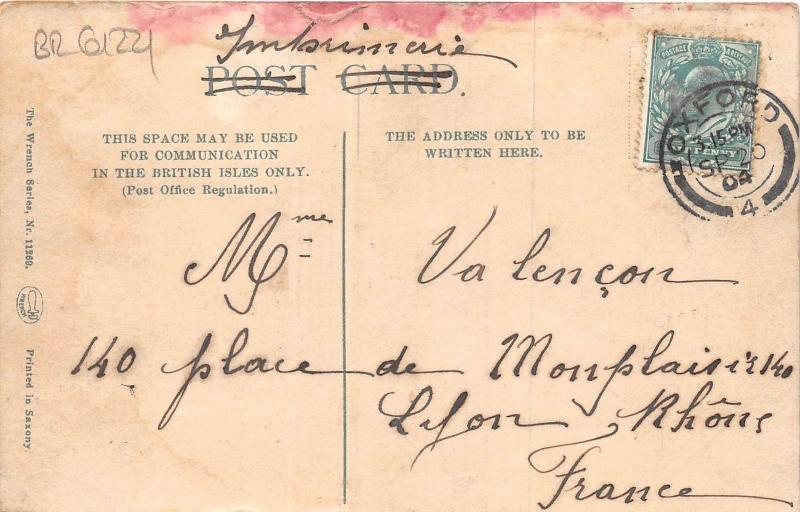 BR 61221
Imbrimerie
POST CARD.
THIS SPACE MAY BE USED
FOR COMMUNICATION
IN THE BRITISH ISLES ONLY.
(Post Office Regulation.)
THE ADDRESS ONLY TO BE
WRITTEN HERE.
POSTAGE & REVENUE
PENNY
OXFORD
5.15 PM
SP 20
04
4
Mme Valençon
140 place de Monplaisir 140
Lyon Rhône
France
The Wrench Series, Nr. 11269.
WRENCH
Printed in Saxony.